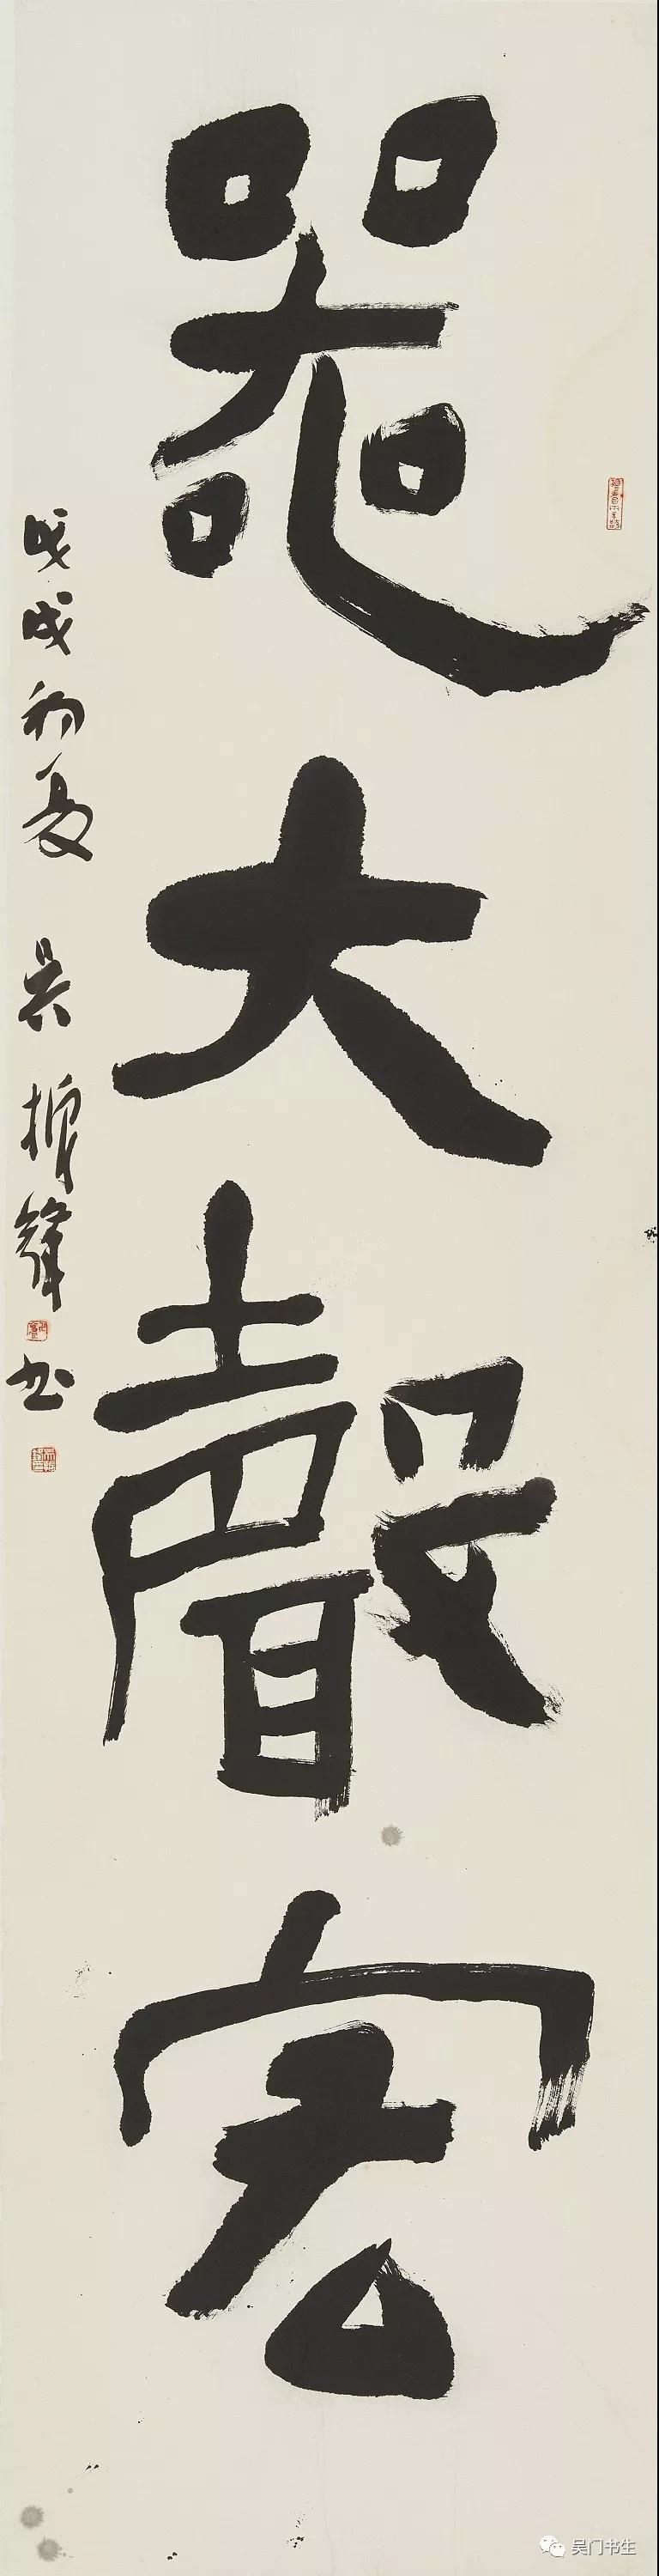 器大聲宏
戊戌初夏 吴振鋒书
吴门书生